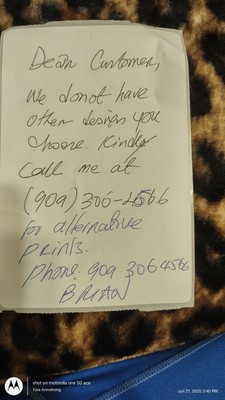 Dear Customer,
We donot have
other design you
choose. Kinder
Call me at
(909) 306-4566
for alternative
prints.
Phone: 909 306 4566
BRIAN
shot on motorola one 5G ace
Tina Armstrong
Jun 21, 2023, 5:40 PM